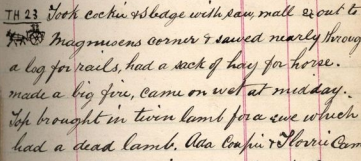 TH 23 Took cockie & sledge with saw, mall & out to
Magnusens corner & sawed nearly through
a log for rails, had a sack of hay for horse.
made a big fire, came on wet at midday.
Top brought in twin lamb for a ewe which
had a dead lamb. Ada & Florrie Cam